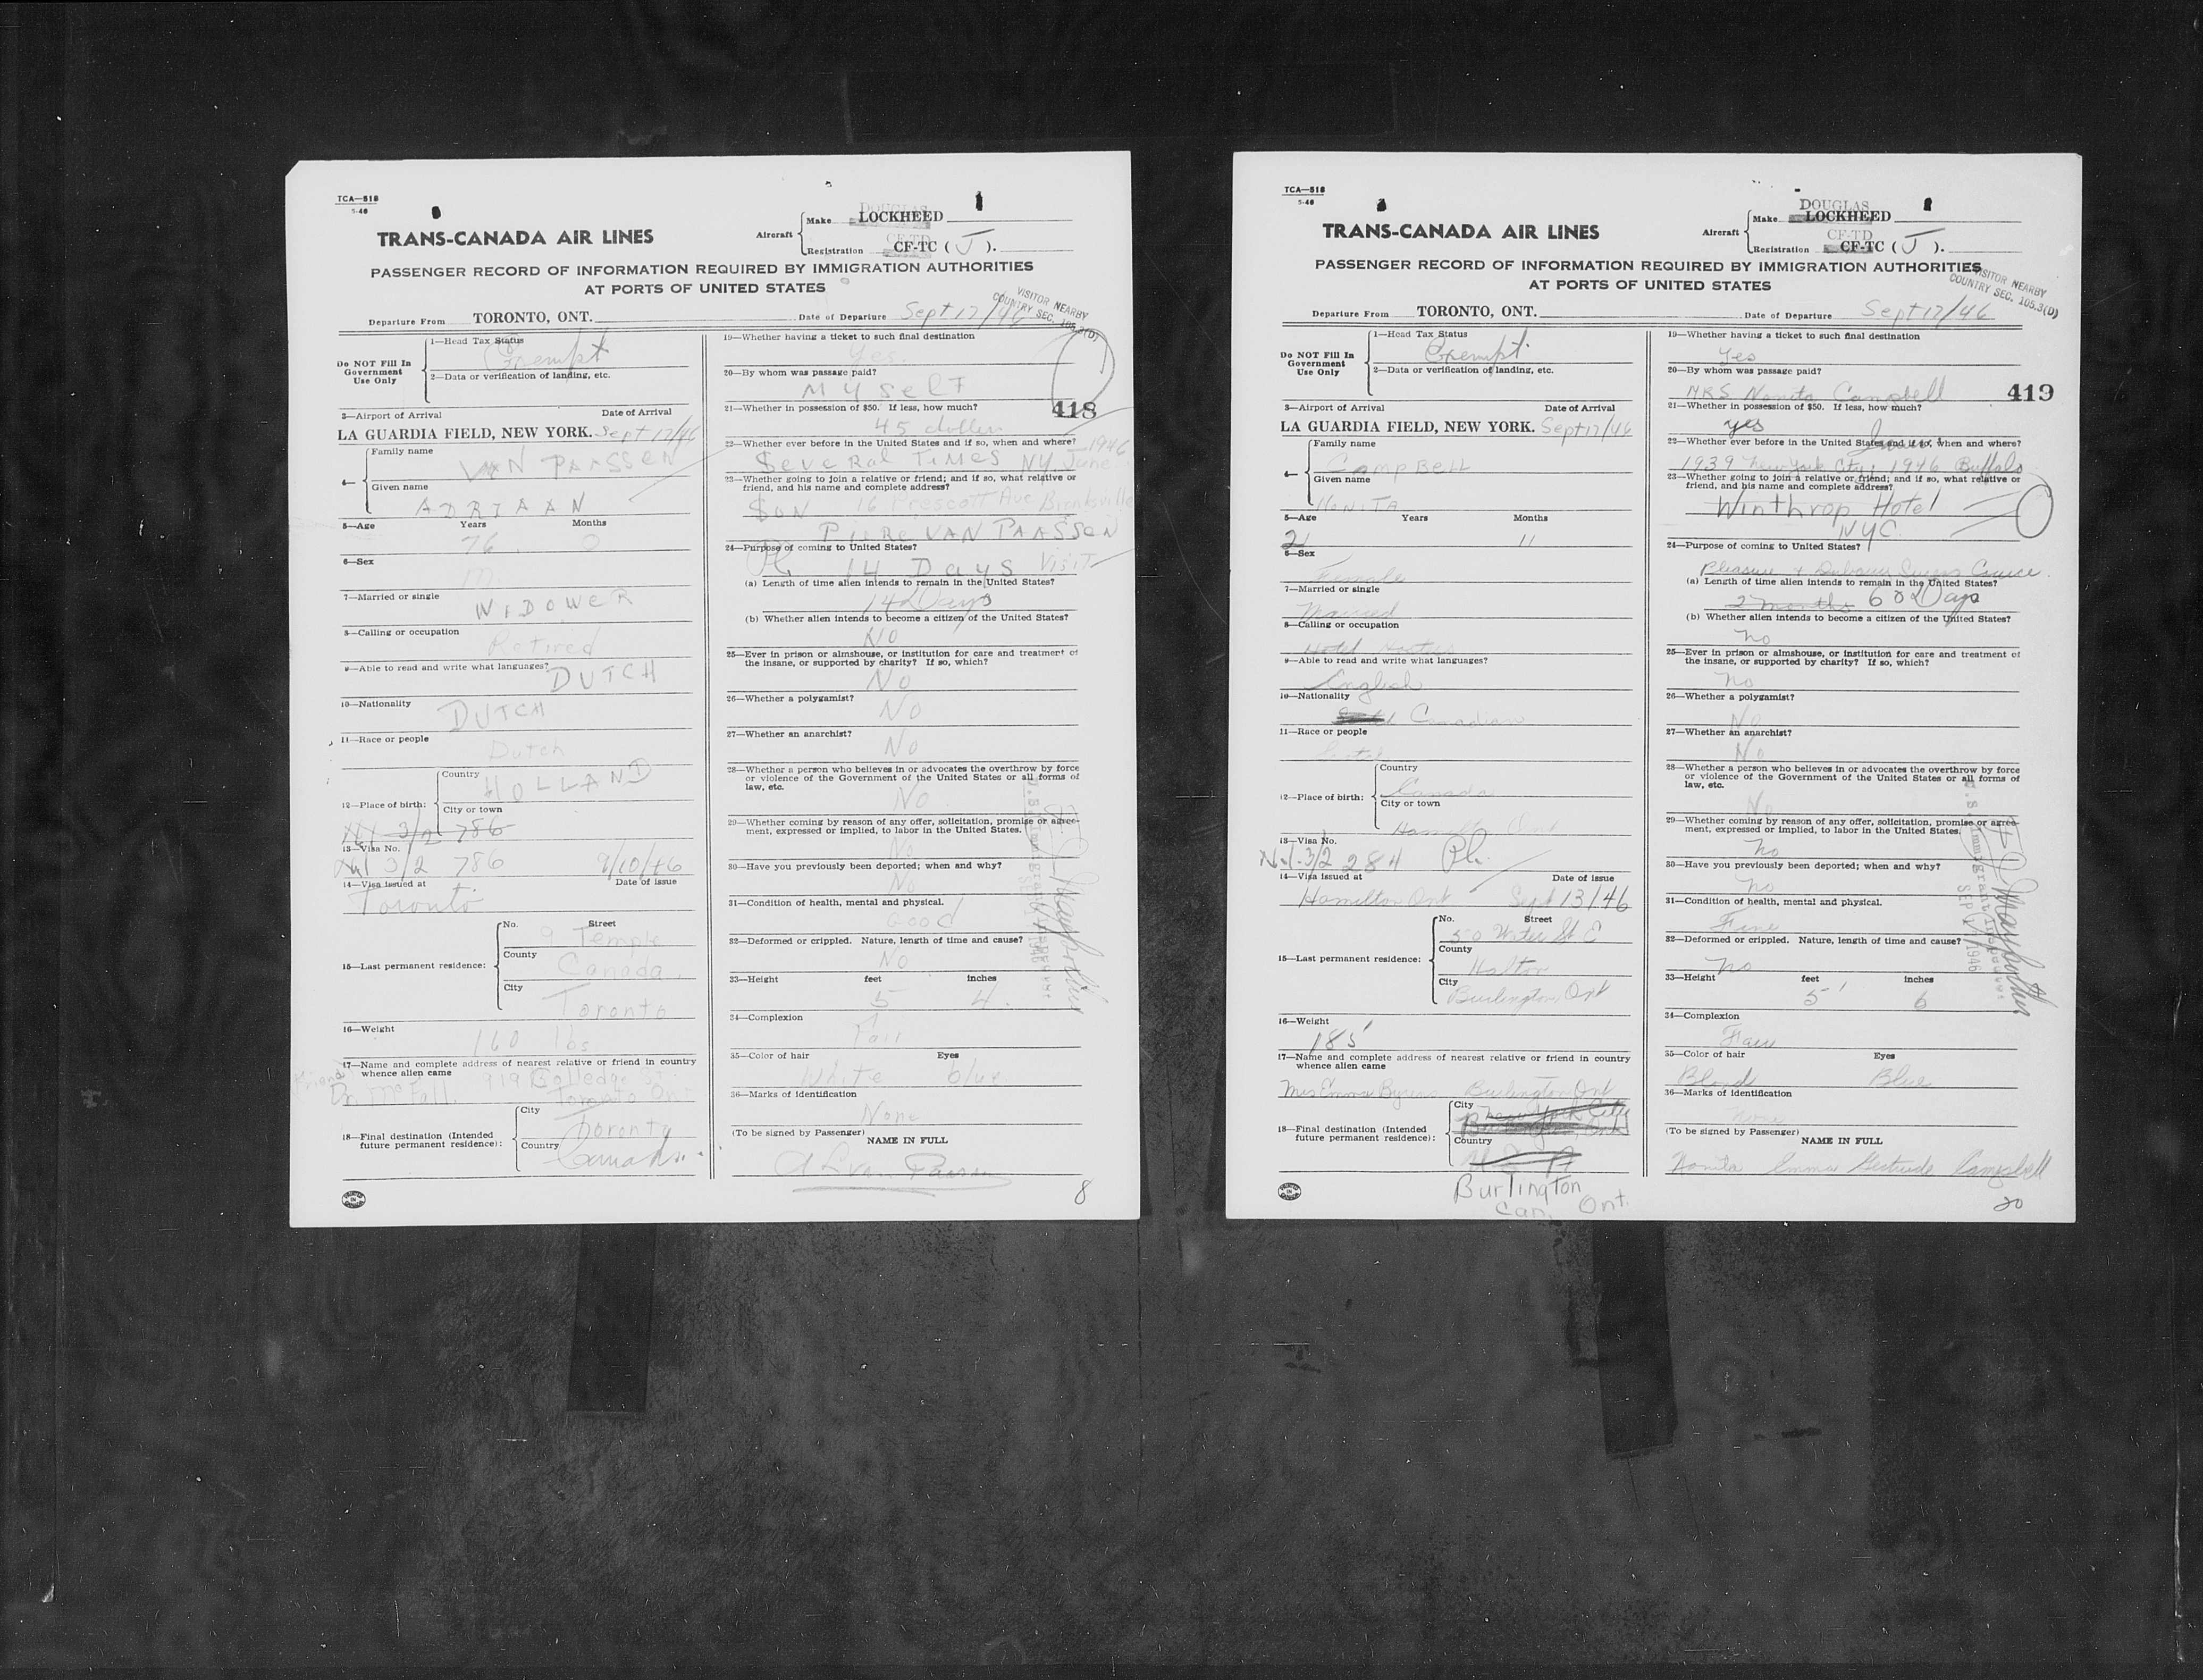 TCA—518
5-46
TRANS-CANADA AIR LINES
Aircraft
Make DOUGLAS LOCKHEED
Registration CF-TD CF-TC ( J ).
PASSENGER RECORD OF INFORMATION REQUIRED BY IMMIGRATION AUTHORITIES
AT PORTS OF UNITED STATES
VISITOR NEARBY
COUNTRY SEC. 105.3(D)
Departure From TORONTO, ONT. Date of Departure Sept 17/46
Do NOT Fill In
Government
Use Only
1—Head Tax Status
Exempt
2—Data or verification of landing, etc.
3—Airport of Arrival Date of Arrival
LA GUARDIA FIELD, NEW YORK. Sept 17/46
4—
Family name
VAN PAASSEN
Given name
ADRIAAN
5—Age Years Months
76 0
6—Sex
M
7—Married or single
WIDOWER
8—Calling or occupation
Retired
9—Able to read and write what languages?
DUTCH
10—Nationality
DUTCH
11—Race or people
Dutch
12—Place of birth:
Country
HOLLAND
City or town
3/2 786
13—Visa No.
3/2 786 9/10/46
14—Visa issued at Date of issue
Toronto
15—Last permanent residence:
No. Street
9 Temple
County
Canada
City
Toronto
16—Weight
160 lbs
17—Name and complete address of nearest relative or friend in country
whence alien came
Friend
Dr. McFall. 919 Colledge St
Toronto Ont
18—Final destination (Intended
future permanent residence):
City
Toronto
Country
Canada
19—Whether having a ticket to such final destination
Yes.
20—By whom was passage paid?
MYSELF
418
21—Whether in possession of $50. If less, how much?
45 dollers
22—Whether ever before in the United States and if so, when and where?
SEVERAL TIMES NY. June 1946
23—Whether going to join a relative or friend; and if so, what relative or
friend, and his name and complete address?
SON 16 Prescott Ave Bronksville
PIERE VAN PAASSEN
24—Purpose of coming to United States?
Pl. 14 Days Visit
(a) Length of time alien intends to remain in the United States?
14 Days
(b) Whether alien intends to become a citizen of the United States?
NO
25—Ever in prison or almshouse, or institution for care and treatment of
the insane, or supported by charity? If so, which?
No
26—Whether a polygamist?
No
27—Whether an anarchist?
No
28—Whether a person who believes in or advocates the overthrow by force
or violence of the Government of the United States or all forms of
law, etc.
No
29—Whether coming by reason of any offer, solicitation, promise or agree-
ment, expressed or implied, to labor in the United States.
No
30—Have you previously been deported; when and why?
No
31—Condition of health, mental and physical.
Good
32—Deformed or crippled. Nature, length of time and cause?
No
33—Height feet inches
5 4.
34—Complexion
Fair
35—Color of hair Eyes
White blue
36—Marks of identification
None
(To be signed by Passenger)
NAME IN FULL
8
TCA—518
5-46
TRANS-CANADA AIR LINES
Aircraft
Make DOUGLAS LOCKHEED
Registration CF-TD CF-TC ( J ).
PASSENGER RECORD OF INFORMATION REQUIRED BY IMMIGRATION AUTHORITIES
AT PORTS OF UNITED STATES
VISITOR NEARBY
COUNTRY SEC. 105.3(D)
Departure From TORONTO, ONT. Date of Departure Sept 17/46
Do NOT Fill In
Government
Use Only
1—Head Tax Status
Exempt
2—Data or verification of landing, etc.
3—Airport of Arrival Date of Arrival
LA GUARDIA FIELD, NEW YORK. Sept 17/46
4—
Family name
CampBELL
Given name
NONITA
5—Age Years Months
21 11
6—Sex
Female
7—Married or single
Married
8—Calling or occupation
Hotel Hostess
9—Able to read and write what languages?
English
10—Nationality
Canadian
11—Race or people
Scotch
12—Place of birth:
Country
Canada
City or town
Hamilton Ont
13—Visa No.
3/2 284 Pl.
14—Visa issued at Date of issue
Hamilton Ont Sept 13/46
15—Last permanent residence:
No. Street
50 Water St E
County
Halton
City
Burlington, Ont
16—Weight
185
17—Name and complete address of nearest relative or friend in country
whence alien came
Mrs Emma Byrens Burlington Ont
18—Final destination (Intended
future permanent residence):
City
New York City
Country
U S A
Burlington
Can. Ont.
19—Whether having a ticket to such final destination
Yes
20—By whom was passage paid?
MRS Nonita Campbell
419
21—Whether in possession of $50. If less, how much?
yes
22—Whether ever before in the United States and if so, when and where?
1939 New York City; 1946 Buffalo
23—Whether going to join a relative or friend; and if so, what relative or
friend, and his name and complete address?
Winthrop Hotel
NYC
24—Purpose of coming to United States?
Pleasure &
(a) Length of time alien intends to remain in the United States?
2 months 60 Days
(b) Whether alien intends to become a citizen of the United States?
no
25—Ever in prison or almshouse, or institution for care and treatment of
the insane, or supported by charity? If so, which?
no
26—Whether a polygamist?
No
27—Whether an anarchist?
No
28—Whether a person who believes in or advocates the overthrow by force
or violence of the Government of the United States or all forms of
law, etc.
No
29—Whether coming by reason of any offer, solicitation, promise or agree-
ment, expressed or implied, to labor in the United States.
no
30—Have you previously been deported; when and why?
no
31—Condition of health, mental and physical.
Fine
32—Deformed or crippled. Nature, length of time and cause?
no
33—Height feet inches
5' 6
34—Complexion
Fair
35—Color of hair Eyes
Blond Blue
36—Marks of identification
None
(To be signed by Passenger)
NAME IN FULL
Nonita Emma Gertrude Campbell
20